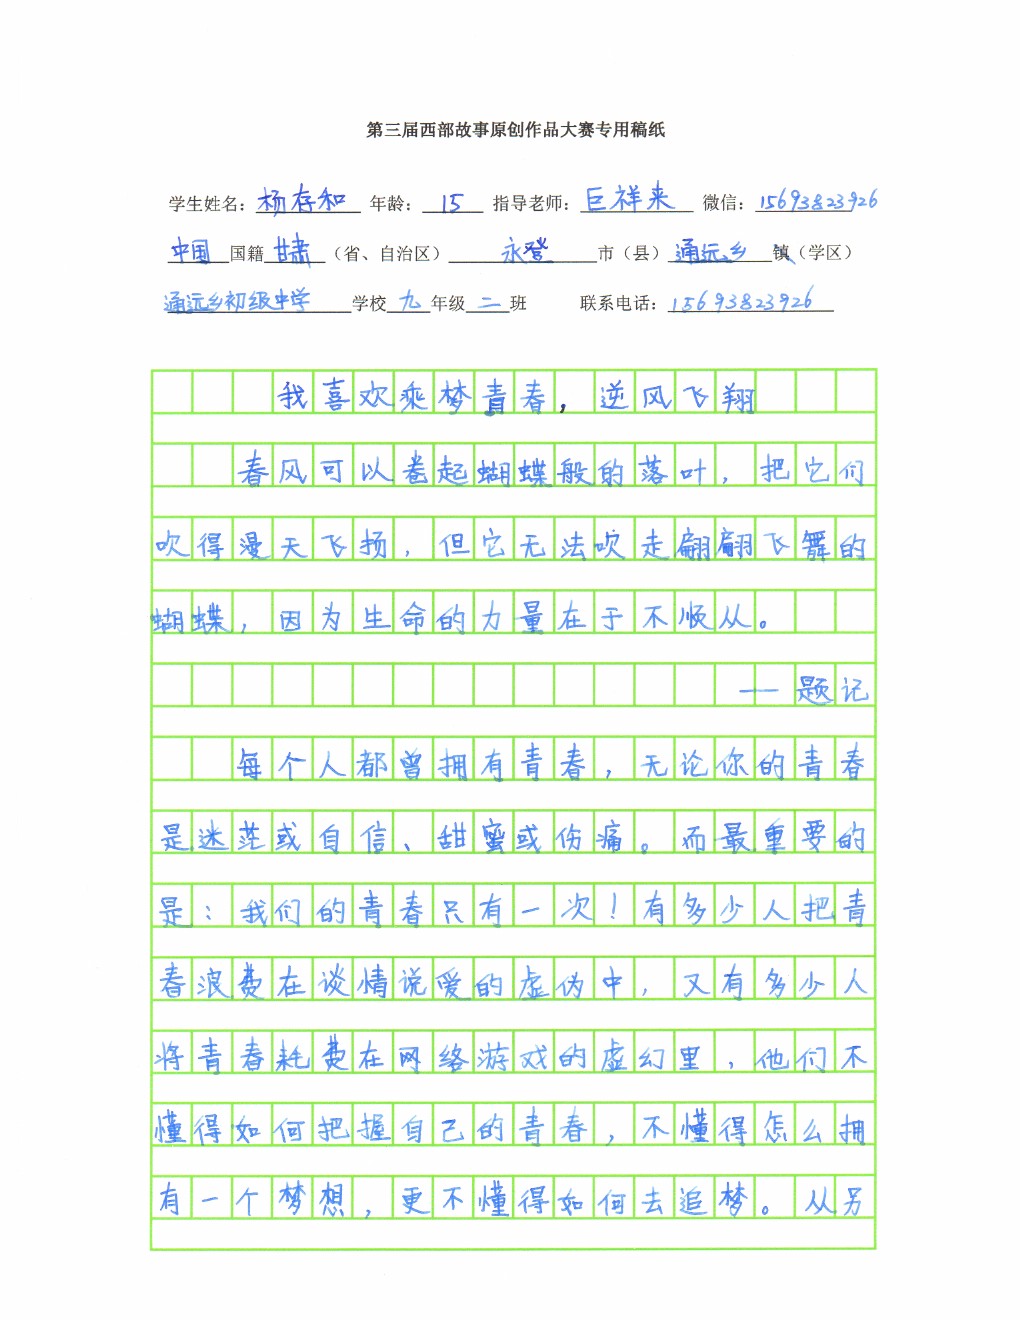 第三届西部故事原创作品大赛专用稿纸
学生姓名：杨存和 年龄：15 指导老师：巨祥来 微信：15693823926
中国国籍甘肃（省、自治区）永登市（县）通远乡镇（学区）
通远乡初级中学学校九年级二班 联系电话：15693823926
我喜欢乘梦青春，逆风飞翔
春风可以卷起蝴蝶般的落叶，把它们
吹得漫天飞扬，但它无法吹走翩翩飞舞的
蝴蝶，因为生命的力量在于不顺从。
——题记
每个人都曾拥有青春，无论你的青春
是迷茫或自信、甜蜜或伤痛。而最重要的
是：我们的青春只有一次！有多少人把青
春浪费在谈情说爱的虚伪中，又有多少人
将青春耗费在网络游戏的虚幻里，他们不
懂得如何把握自己的青春，不懂得怎么拥
有一个梦想，更不懂得如何去追梦。从另